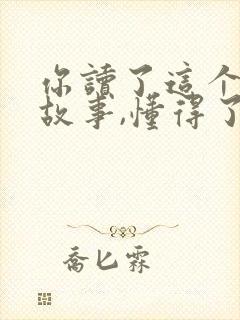 你讀了這个
故事,懂得了
喬匕霖